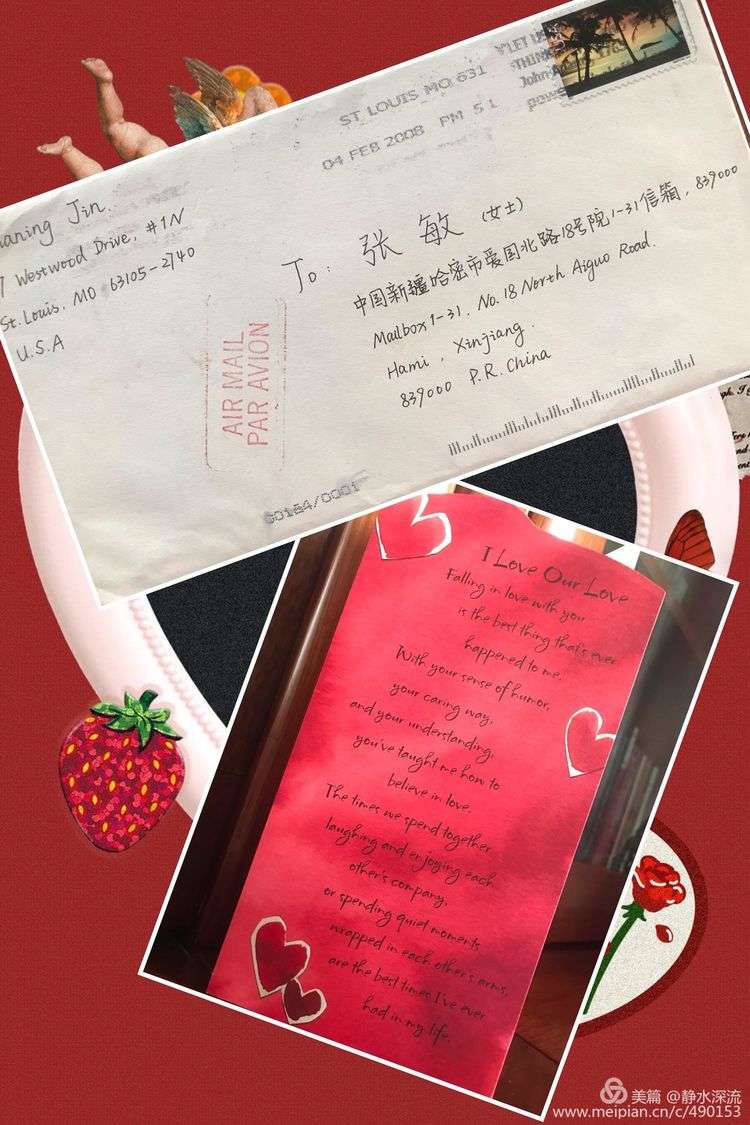 ST LOUIS MO 631
04 FEB 2008 PM 5 L
Jin.
Westwood Drive, #1N
St. Louis, MO 63105-2740
U.S.A
AIR MAIL
PAR AVION
To: 张敏 (女士)
中国新疆哈密市爱国北路18号院1-31信箱, 839000
Mailbox 1-31, No. 18 North Aiguo Road.
Hami, Xinjiang.
839000 P.R. China
00184/0001
I Love Our Love
Falling in love with you
is the best thing that's ever
happened to me.
With your sense of humor,
your caring way,
and your understanding,
you've taught me how to
believe in love.
The times we spend together
laughing and enjoying each
other's company,
or spending quiet moments
wrapped in each other's arms,
are the best times I've ever
had in my life.
美篇 @静水深流
www.meipian.cn/c/490153